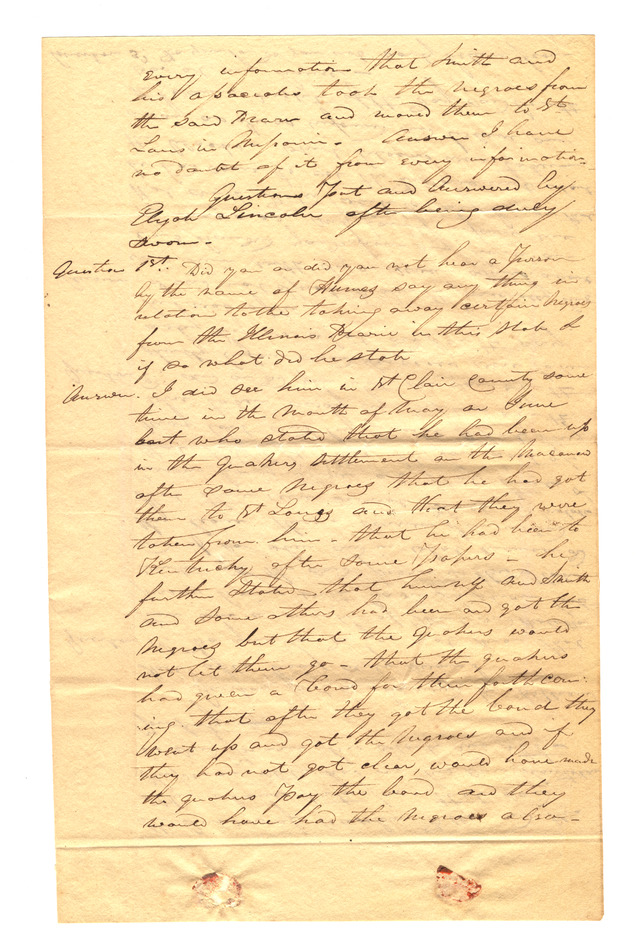 every information that Smith and
his associates took the negroes from
the said Dearn and moved them to St.
Louis in Missouri - Answer I have
no doubt of it from every information
Questions Put and Answered by
Elijah Lincoln after being duly
sworn -
Question 1st. Did you or did you not hear a Person
by the name of say any thing in
relation to the taking away certain Negroes
from the Illinois in this State &
if so what did he state
Answer. I did see him in St Clair County some
time in the Month of May or June
last who stated that he had been up
in the Quakers settlement on the
after some Negroes that he had got
them to St Louis and that they were
taken from him - that he had been to
Kentucky after some Papers - he
further stated that himself and Smith
and some others had been and got the
Negroes but that the Quakers would
not let them go - that the quakers
had given a bond for their forth com:
ing that after they got the bond they
went up and got the Negroes and if
they had not got clear, would have made
the quakers Pay the bond and they
would have had the Negroes also -